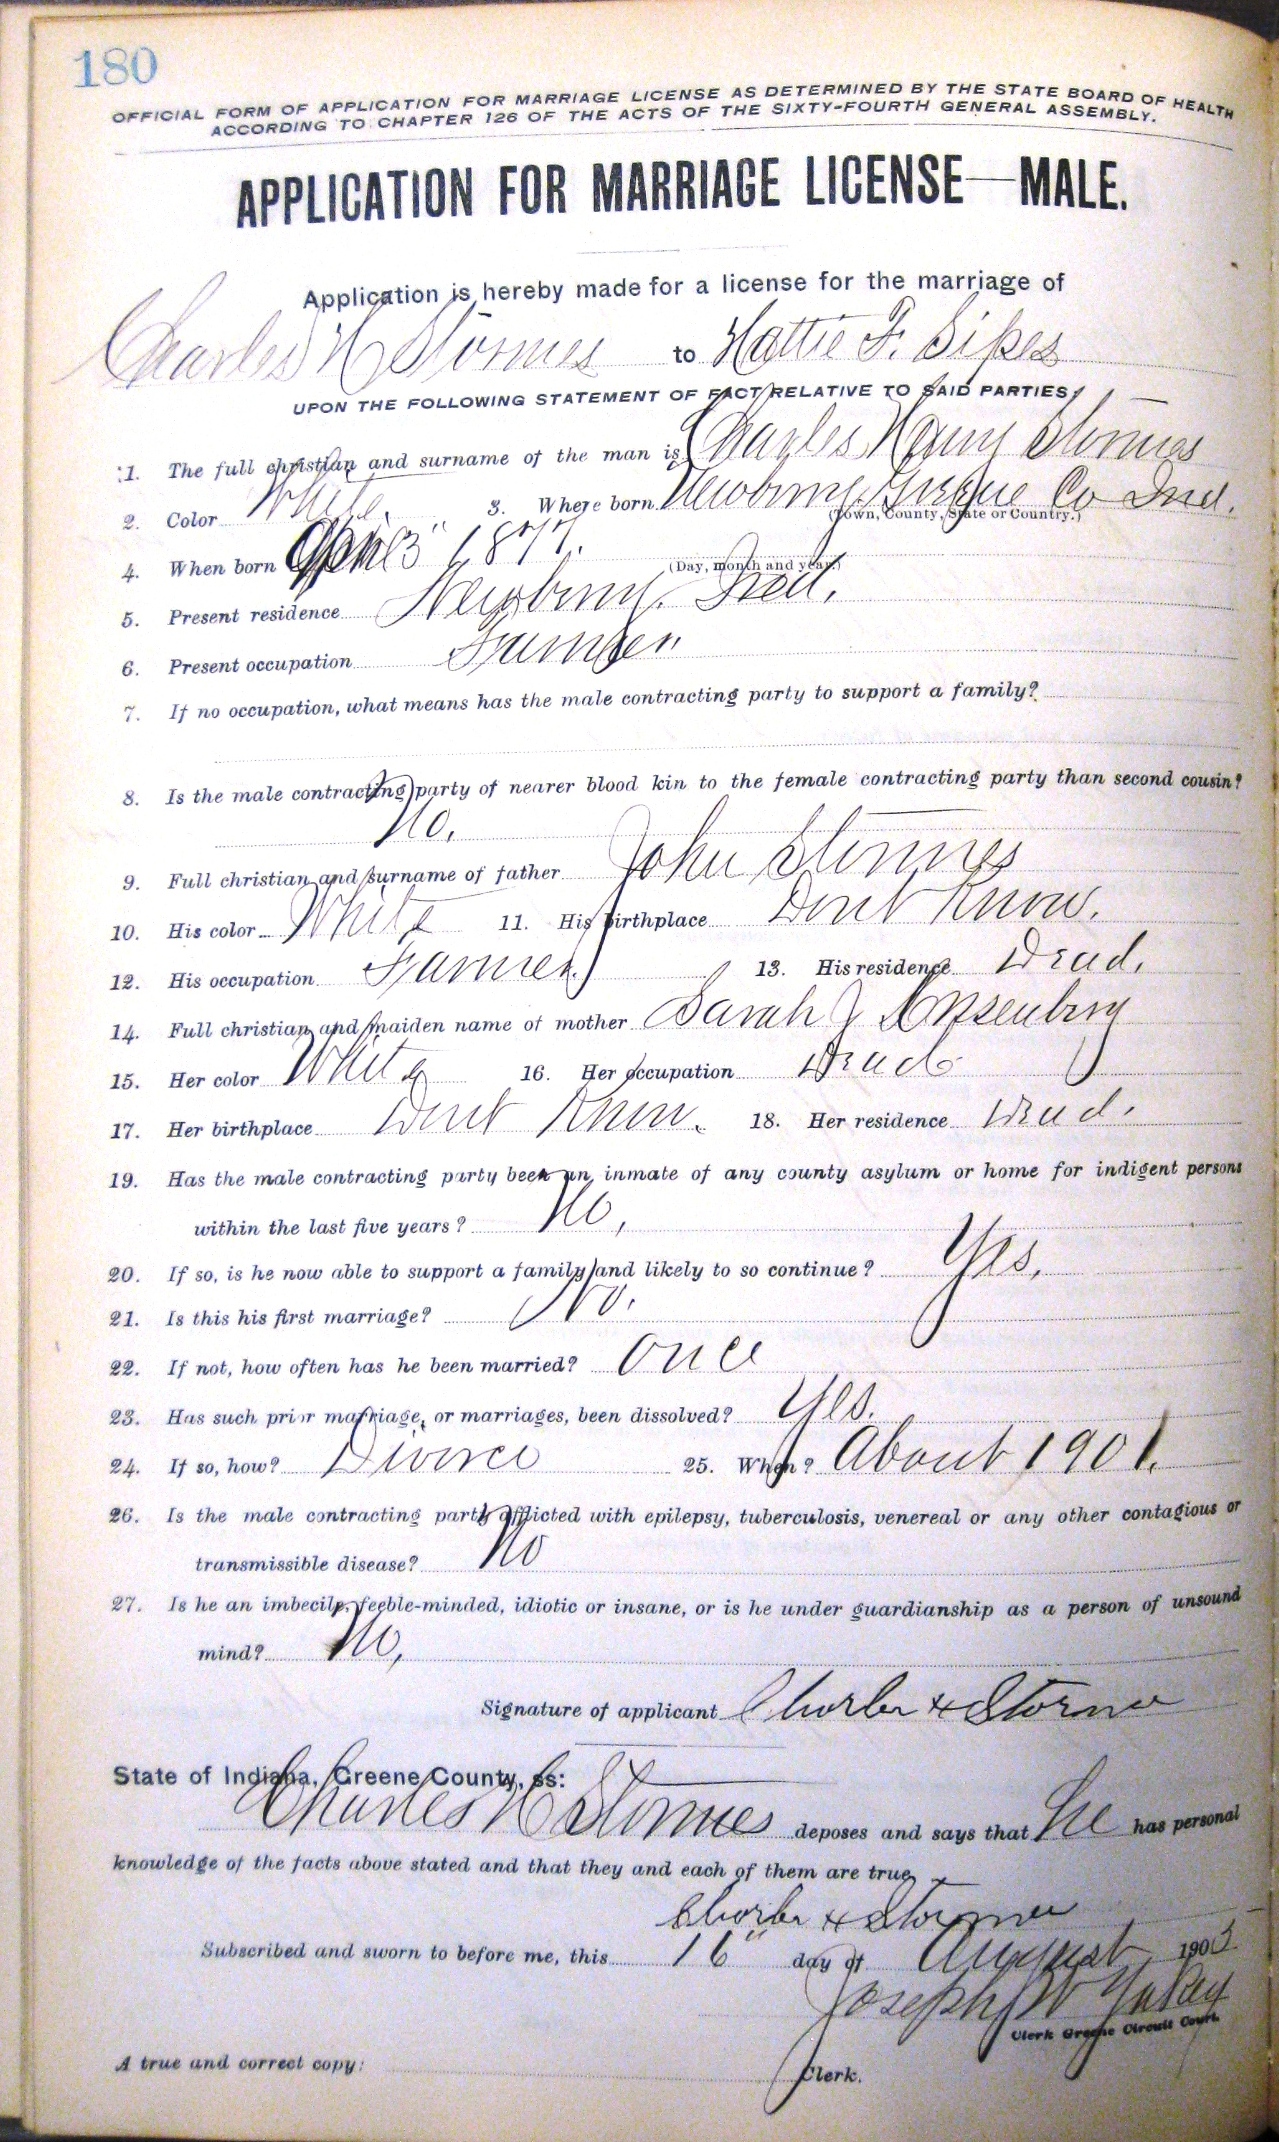 180
OFFICIAL FORM OF APPLICATION FOR MARRIAGE LICENSE AS DETERMINED BY THE STATE BOARD OF HEALTH
ACCORDING TO CHAPTER 126 OF THE ACTS OF THE SIXTY-FOURTH GENERAL ASSEMBLY.
APPLICATION FOR MARRIAGE LICENSE—MALE.
Application is hereby made for a license for the marriage of
Charles H Stormes to Hattie F. Sipes
UPON THE FOLLOWING STATEMENT OF FACT RELATIVE TO SAID PARTIES:
1. The full christian and surname of the man is Charles Henry Stormes
2. Color White. 3. Where born Newberry, Greene Co Ind.
(Town, County, State or Country.)
4. When born April 3" 1877.
(Day, month and year.)
5. Present residence Newberry. Ind.
6. Present occupation Farmer
7. If no occupation, what means has the male contracting party to support a family?
8. Is the male contracting party of nearer blood kin to the female contracting party than second cousin?
No.
9. Full christian and surname of father John Stormes
10. His color White 11. His birthplace Dont Know.
12. His occupation Farmer 13. His residence Dead.
14. Full christian and maiden name of mother Sarah J
15. Her color White 16. Her occupation Dead
17. Her birthplace Dont Know. 18. Her residence Dead.
19. Has the male contracting party been an inmate of any county asylum or home for indigent persons
within the last five years? No,
20. If so, is he now able to support a family and likely to so continue? Yes,
21. Is this his first marriage? No.
22. If not, how often has he been married? Once
23. Has such prior marriage, or marriages, been dissolved? Yes.
24. If so, how? Divorce 25. When? About 1901.
26. Is the male contracting party afflicted with epilepsy, tuberculosis, venereal or any other contagious or
transmissible disease? No
27. Is he an imbecile, feeble-minded, idiotic or insane, or is he under guardianship as a person of unsound
mind? No,
Signature of applicant Charles H Storms
State of Indiana, Greene County, ss:
Charles H Stormes deposes and says that he has personal
knowledge of the facts above stated and that they and each of them are true
Charles H Storms
Subscribed and sworn to before me, this 16" day of August 1905
Joseph W Yakey
Clerk Greene Circuit Court.
A true and correct copy: Clerk.